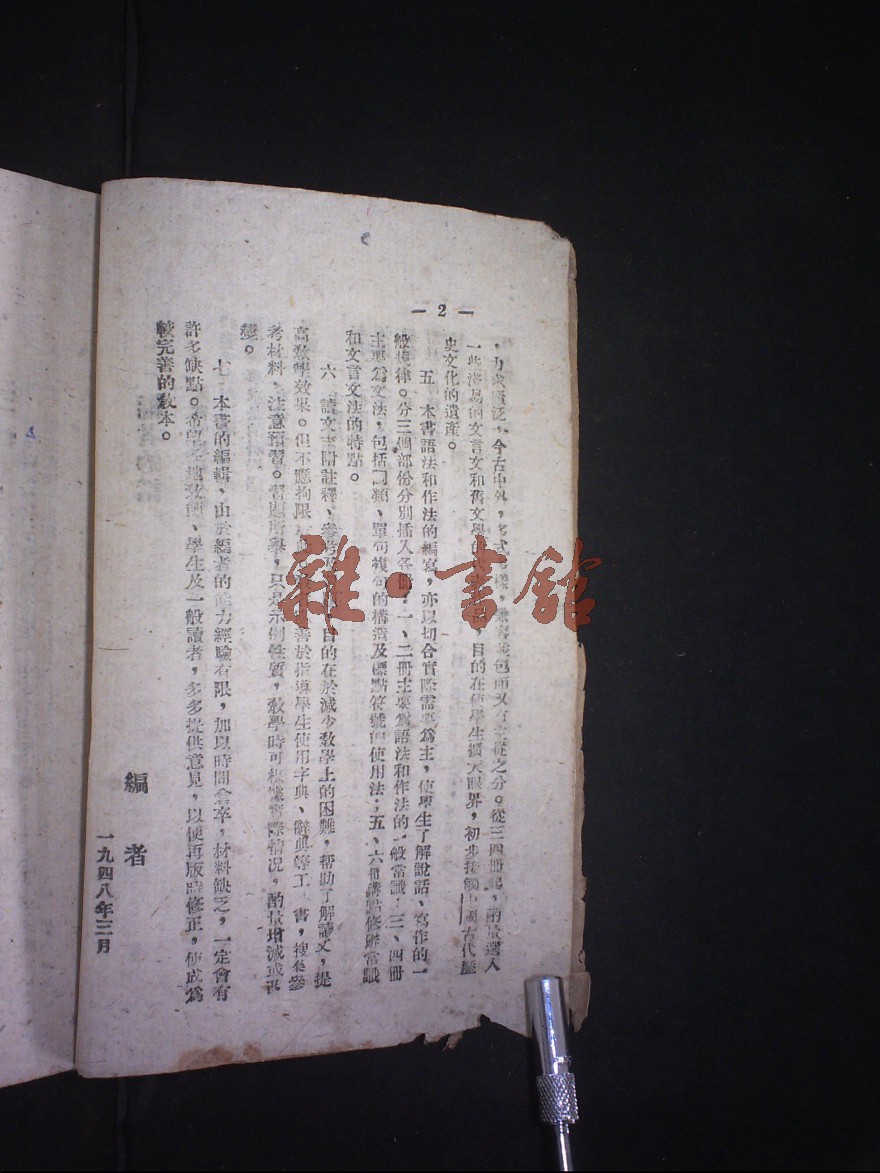 — 2 —
，力求廣泛，今古中外，多式多樣，兼容並包而又有主從之分。從三四冊起，酌量選入
一些淺易的文言文和舊文學的代表作品，目的在使學生擴大眼界，初步接觸中國古代歷
史文化的遺產。
五、本書語法和作法的編寫，亦以切合實際需要爲主，使學生了解說話、寫作的一
般規律。分三個部份分別插入各冊：一、二冊主要爲語法和作法的一般常識；三、四冊
主要爲文法，包括詞類、單句複句的構造及標點符號的使用法；五、六冊講點修辭常識
和文言文法的特點。
六、讀文末附註釋、參考及習題，目的在於減少敎學上的困難，帮助了解讀文，提
高敎學效果。但不應拘限於此，善於指導學生使用字典、辭典等工具書，搜集參
考材料，注意預習。習題所舉，只是示例性質，敎學時可根據實際情况，酌量增減或改
變。
七、本書的編輯，由於編者的能力經驗有限，加以時間倉卒，材料缺乏，一定會有
許多缺點。希望各地敎師、學生及一般讀者，多多提供意見，以便再版時修正，使成爲
較完善的敎本。
編者
一九四八年三月
雜·書館